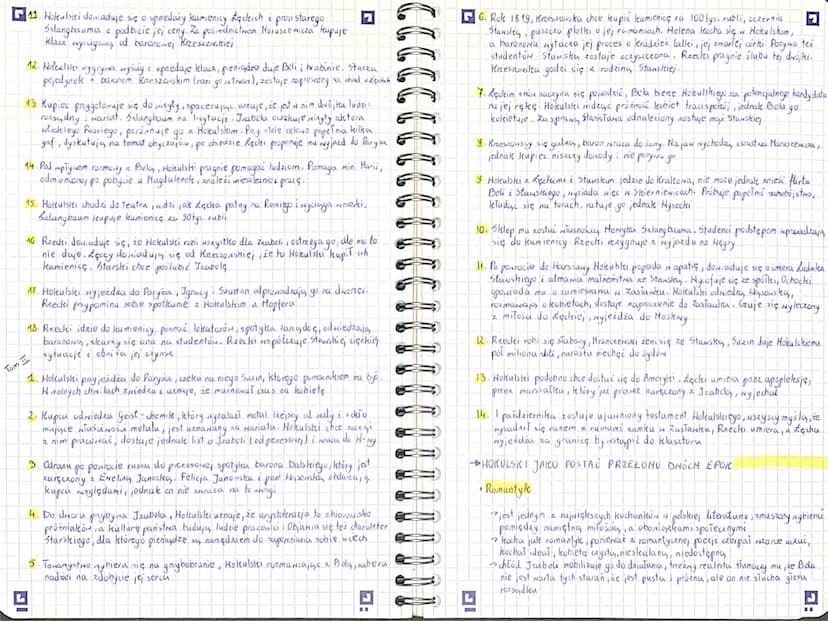 11. Wokulski dowiaduje się o sprzedaży kamienicy Łęckich i prosi starego
Szlangbauma o podbicie jej ceny. Za pośrednictwem Maruszewicza kupuje
klacz wyścigową od baronowej Krzeszowskiej
12. Wokulski wygrywa wyścig i sprzedaje klacz, pieniądze daje Beli i hrabinie. Stacza
pojedynek z baronem Krzeszowskim, zostaje zaproszony na obiad u Łęckich
13. Kupiec przygotowuje się do wizyty, spacerując uznaje, że jest w nim dwójka ludzi:
rozsądny i wariat. Szlangbaum na licytację. Izabela oczekuje wizyty aktora
włoskiego Rossiego, porównuje go z Wokulskim. Przy stole celowo popełnia kilka
gaf, dyskutują na temat obyczajów, po obiedzie Łęcki proponuje mu wyjazd do Paryża
14. Pod wpływem rozmowy z Belą, Wokulski pragnie pomagać ludziom. Pomaga min. Marii,
odmienionej po pobycie u Magdalenek, znaleźć mieszkanie i pracę.
15. Wokulski chodzi do teatru, widzi jak Łęcka patrzy na Rossiego i wyciąga wnioski.
Szlangbaum kupuje kamienicę za 90tys. rubli
16. Rzecki dowiaduje się, że Wokulski robi wszystko dla Izabeli, ostrzega go, ale nic to
nie daje. Łęccy dowiadują się od Krzeszowskiej, iż to Wokulski kupił ich
kamienicę. Starski chce poślubić Izabelę
17. Wokulski wyjeżdża do Paryża, Ignacy i Szuman odprowadzają go na dworzec.
Rzecki przypomina sobie spotkanie z Wokulskim u Hopfera
18. Rzecki idzie do kamienicy, poznać lokatorów, spotyka zarządcę, odwiedzają
baronową, skarży się ona na studentów. Rzecki współczuje Stawskiej ciężkiej
sytuacji i obniża jej czynsz
Tom II
1. Wokulski przyjeżdża do Paryża, czeka na niego Suzin, którego pomocnikiem ma być.
W wolnych chwilach zwiedza i uznaje, że marnował czas na kobietę
2. Kupiec odwiedza Geist - chemik, który wynalazł metal lżejszy od wody i szkło
mające właściwości metalu, jest uznawany za wariata. Wokulski chce zacząć
z nim pracować, dostaje jednak list o Izabeli (od prezesowej) i wraca do W-wy
3. Odrazu po powrocie rusza do prezesowej spotyka barona Dalskiego, który jest
zaręczony z Eweliną Janocką. Felicja Janowska i pani Wąsowska, obdarzają
kupca względami, jednak on nie zwraca na to uwagi
4. Do dworu przybywa Izabela, Wokulski uznaje, że arystokracja to zbiorowisko
próżniaków, a kulturę państwa budują ludzie pracowici. Objawia się też charakter
Starskiego, dla którego pieniądze są narzędziem do zapewniania sobie uciech
5. Towarzystwo wybiera się na grzybobranie, Wokulski rozmawiając z Belą, nabiera
nadziei na zdobycie jej serca
6. Rok 1879, Krzeszowska chce kupić kamienicę za 100tys. rubli, oczernia
Stawską, puszcza plotki o jej romansach. Helena kocha się w Wokulskim,
a baronowa wytacza jej proces o kradzież lalki, jej zmarłej córki. Pozywa też
studentów. Stawska zostaje oczyszczona. Rzecki pragnie ślubu tej dwójki.
Krzeszowska godzi się z rodziną Stawskiej.
7. Łęckim znów zaczyna się powodzić, Bela bierze Wokulskiego za potencjalnego kandydata
na jej rękę. Wokulski widząc próżność kobiet traci spokój, jednak Bela go
kokietuje. Za sprawą Stanisława odnaleziony zostaje mąż Stawskiej
8. Krzeszowscy się godzą, baron wraca do żony. Na jaw wychodzą oszustwa Maruszewicza,
jednak kupiec niszczy dowody i nie pozywa go
9. Wokulski z Łęckimi i Starskim jedzie do Krakowa, nie może jednak znieść flirtu
Beli i Starskiego, wysiada więc w Skierniewicach. Próbuje popełnić samobójstwo,
kładąc się na torach, ratuje go jednak Wysocki
10. Sklep ma zostać własnością Henryka Szlangbauma. Studenci podstępem wyprowadzają
się do kamienicy. Rzecki rezygnuje z wyjazdu na Węgry
11. Po powrocie do Warszawy Wokulski popada w apatię, dowiaduje się o śmierci Ludwika
Stawskiego i odmawia małżeństwa ze Stawską. Wycofuje się ze spółki, Ochocki
opowiada mu o zamieszaniu w Zasławku. Wokulskiego odwiedza Wąsowska,
rozmawiają o kobietach, dostaje zaproszenie do Zasławka. Czuje się wyleczony
z miłości do Łęckiej, wyjeżdża do Moskwy
12. Rzecki robi się słabszy, Mraczewski żeni się ze Stawską, Suzin daje Wokulskiemu
pół miliona rubli, narasta niechęć do żydów
13. Wokulski podobno chce dostać się do Ameryki. Łęcki umiera przez apopleksję,
przez marszałka, który już prawie zaręczony z Izabelą, wyjechał
14. 1 października zostaje ujawniony testament Wokulskiego, wszyscy myślą, że
wysadził się razem z ruinami zamku w Zasławku, Rzecki umiera, a Łęcka
wyjeżdża za granicę by wstąpić do klasztoru
→ WOKULSKI JAKO POSTAĆ PRZEŁOMU DWÓCH EPOK
• Romantyk
→ jest jednym z największych kochanków w polskiej literaturze, zmuszony wybierać
pomiędzy namiętną miłością, a obowiązkami społecznymi
→ kocha jak romantyk, ponieważ z romantycznej poezji czerpał wzorce uczuć,
kochał ideał, kobietę czystą, nieskalaną, niedostępną
→ chłód Izabeli mobilizuje go do działania, trzeźwy realista tłumaczy mu, że Bela
nie jest warta tych starań, że jest pusta i próżna, ale on nie słucha głosu
rozsądku